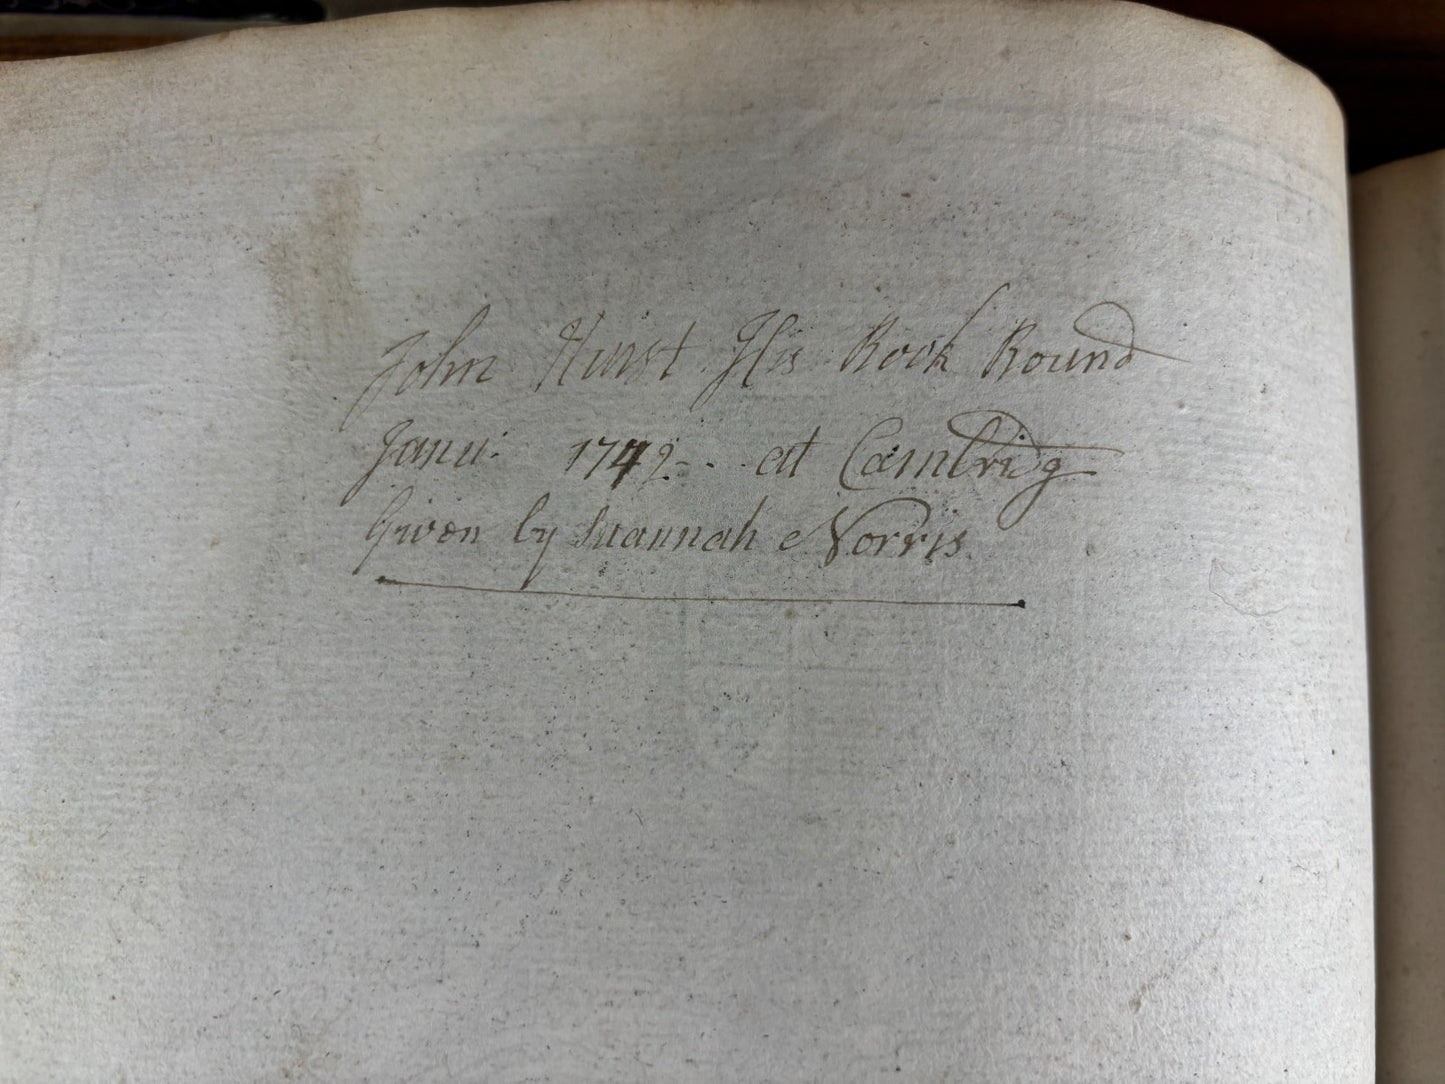 John Hurst His Book Bound
Janu: 1742 - . at Cambridg
Given by Suannah Norris